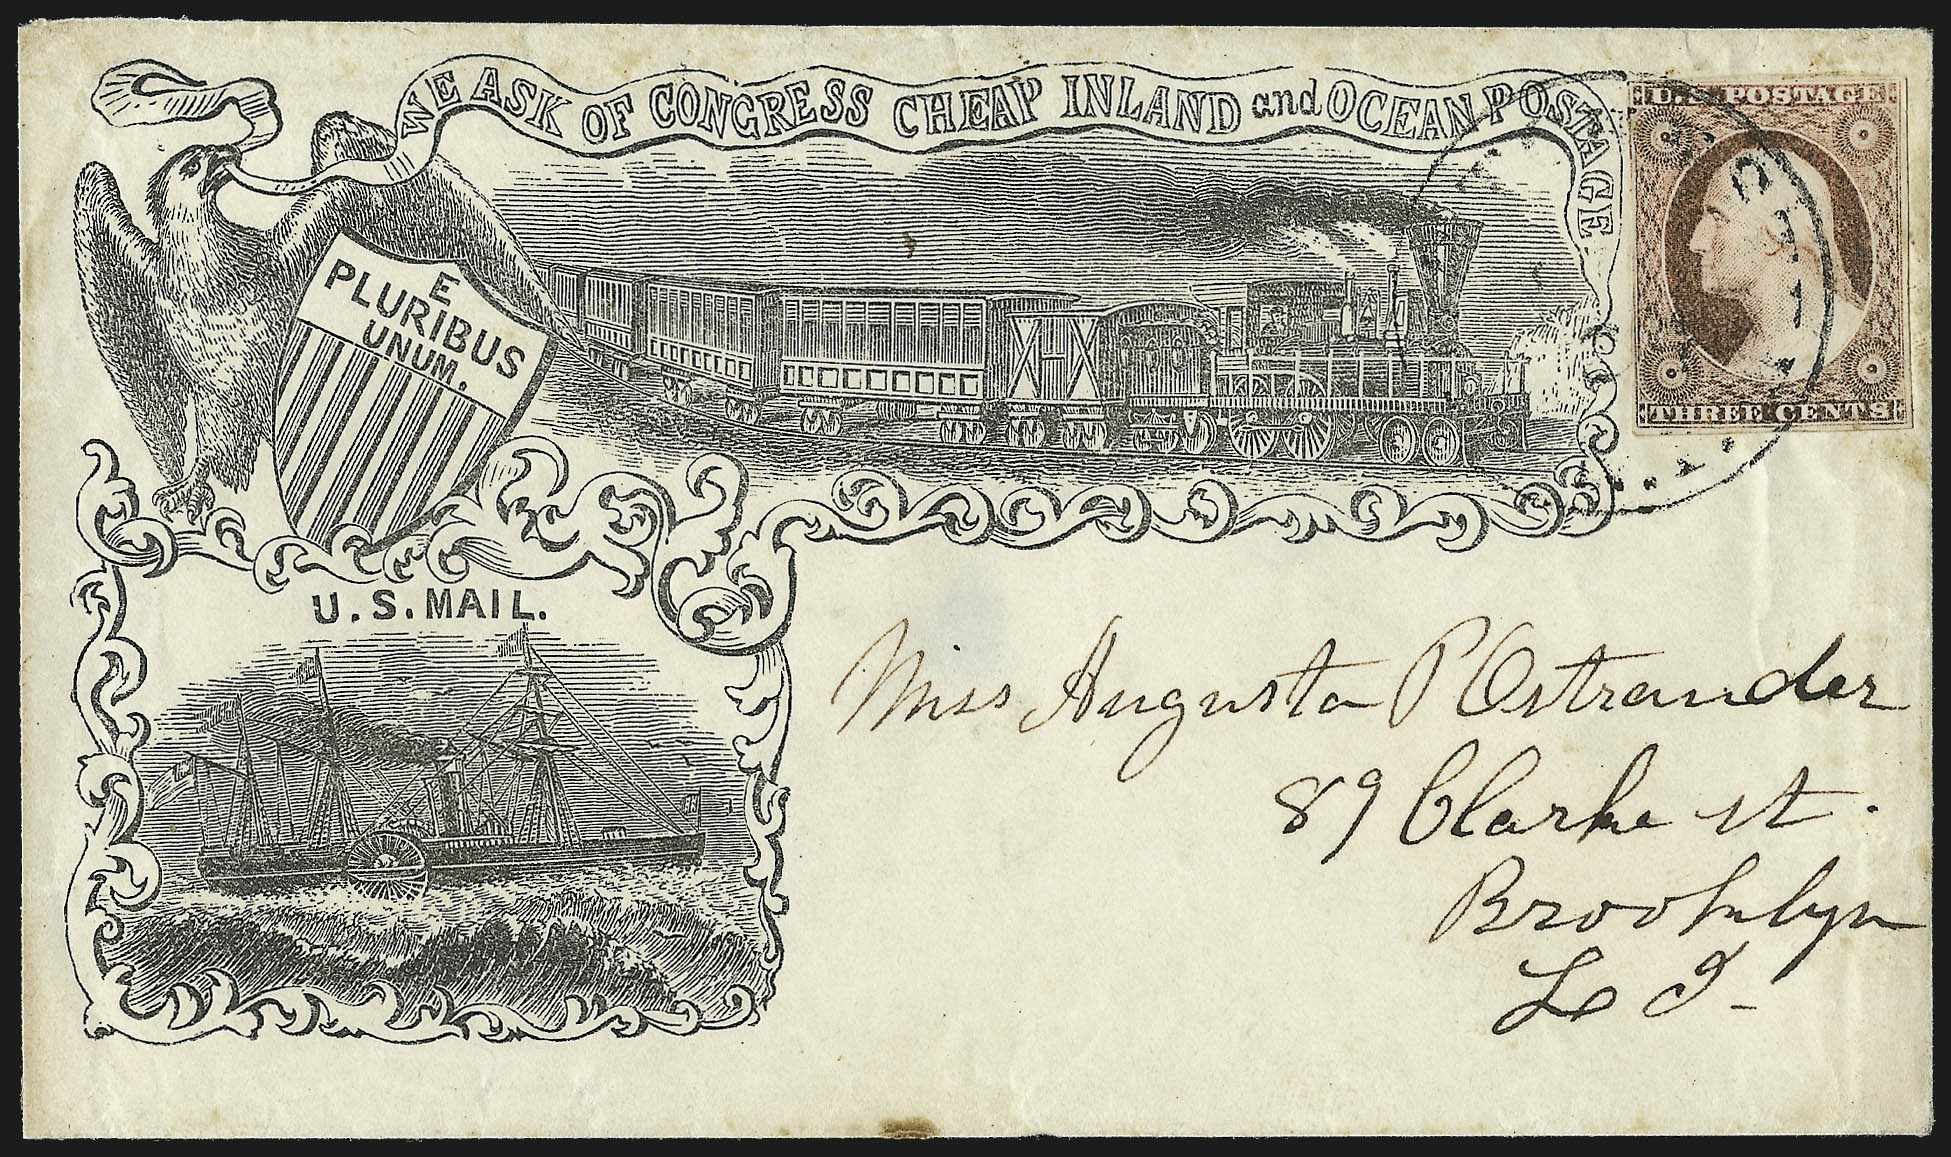 WE ASK OF CONGRESS CHEAP INLAND and OCEAN POSTAGE
U.S. POSTAGE
THREE CENTS
E
PLURIBUS
UNUM.
U.S. MAIL.
Miss Augusta P Ostrander
89 Clarke st.
Brooklyn
L I-